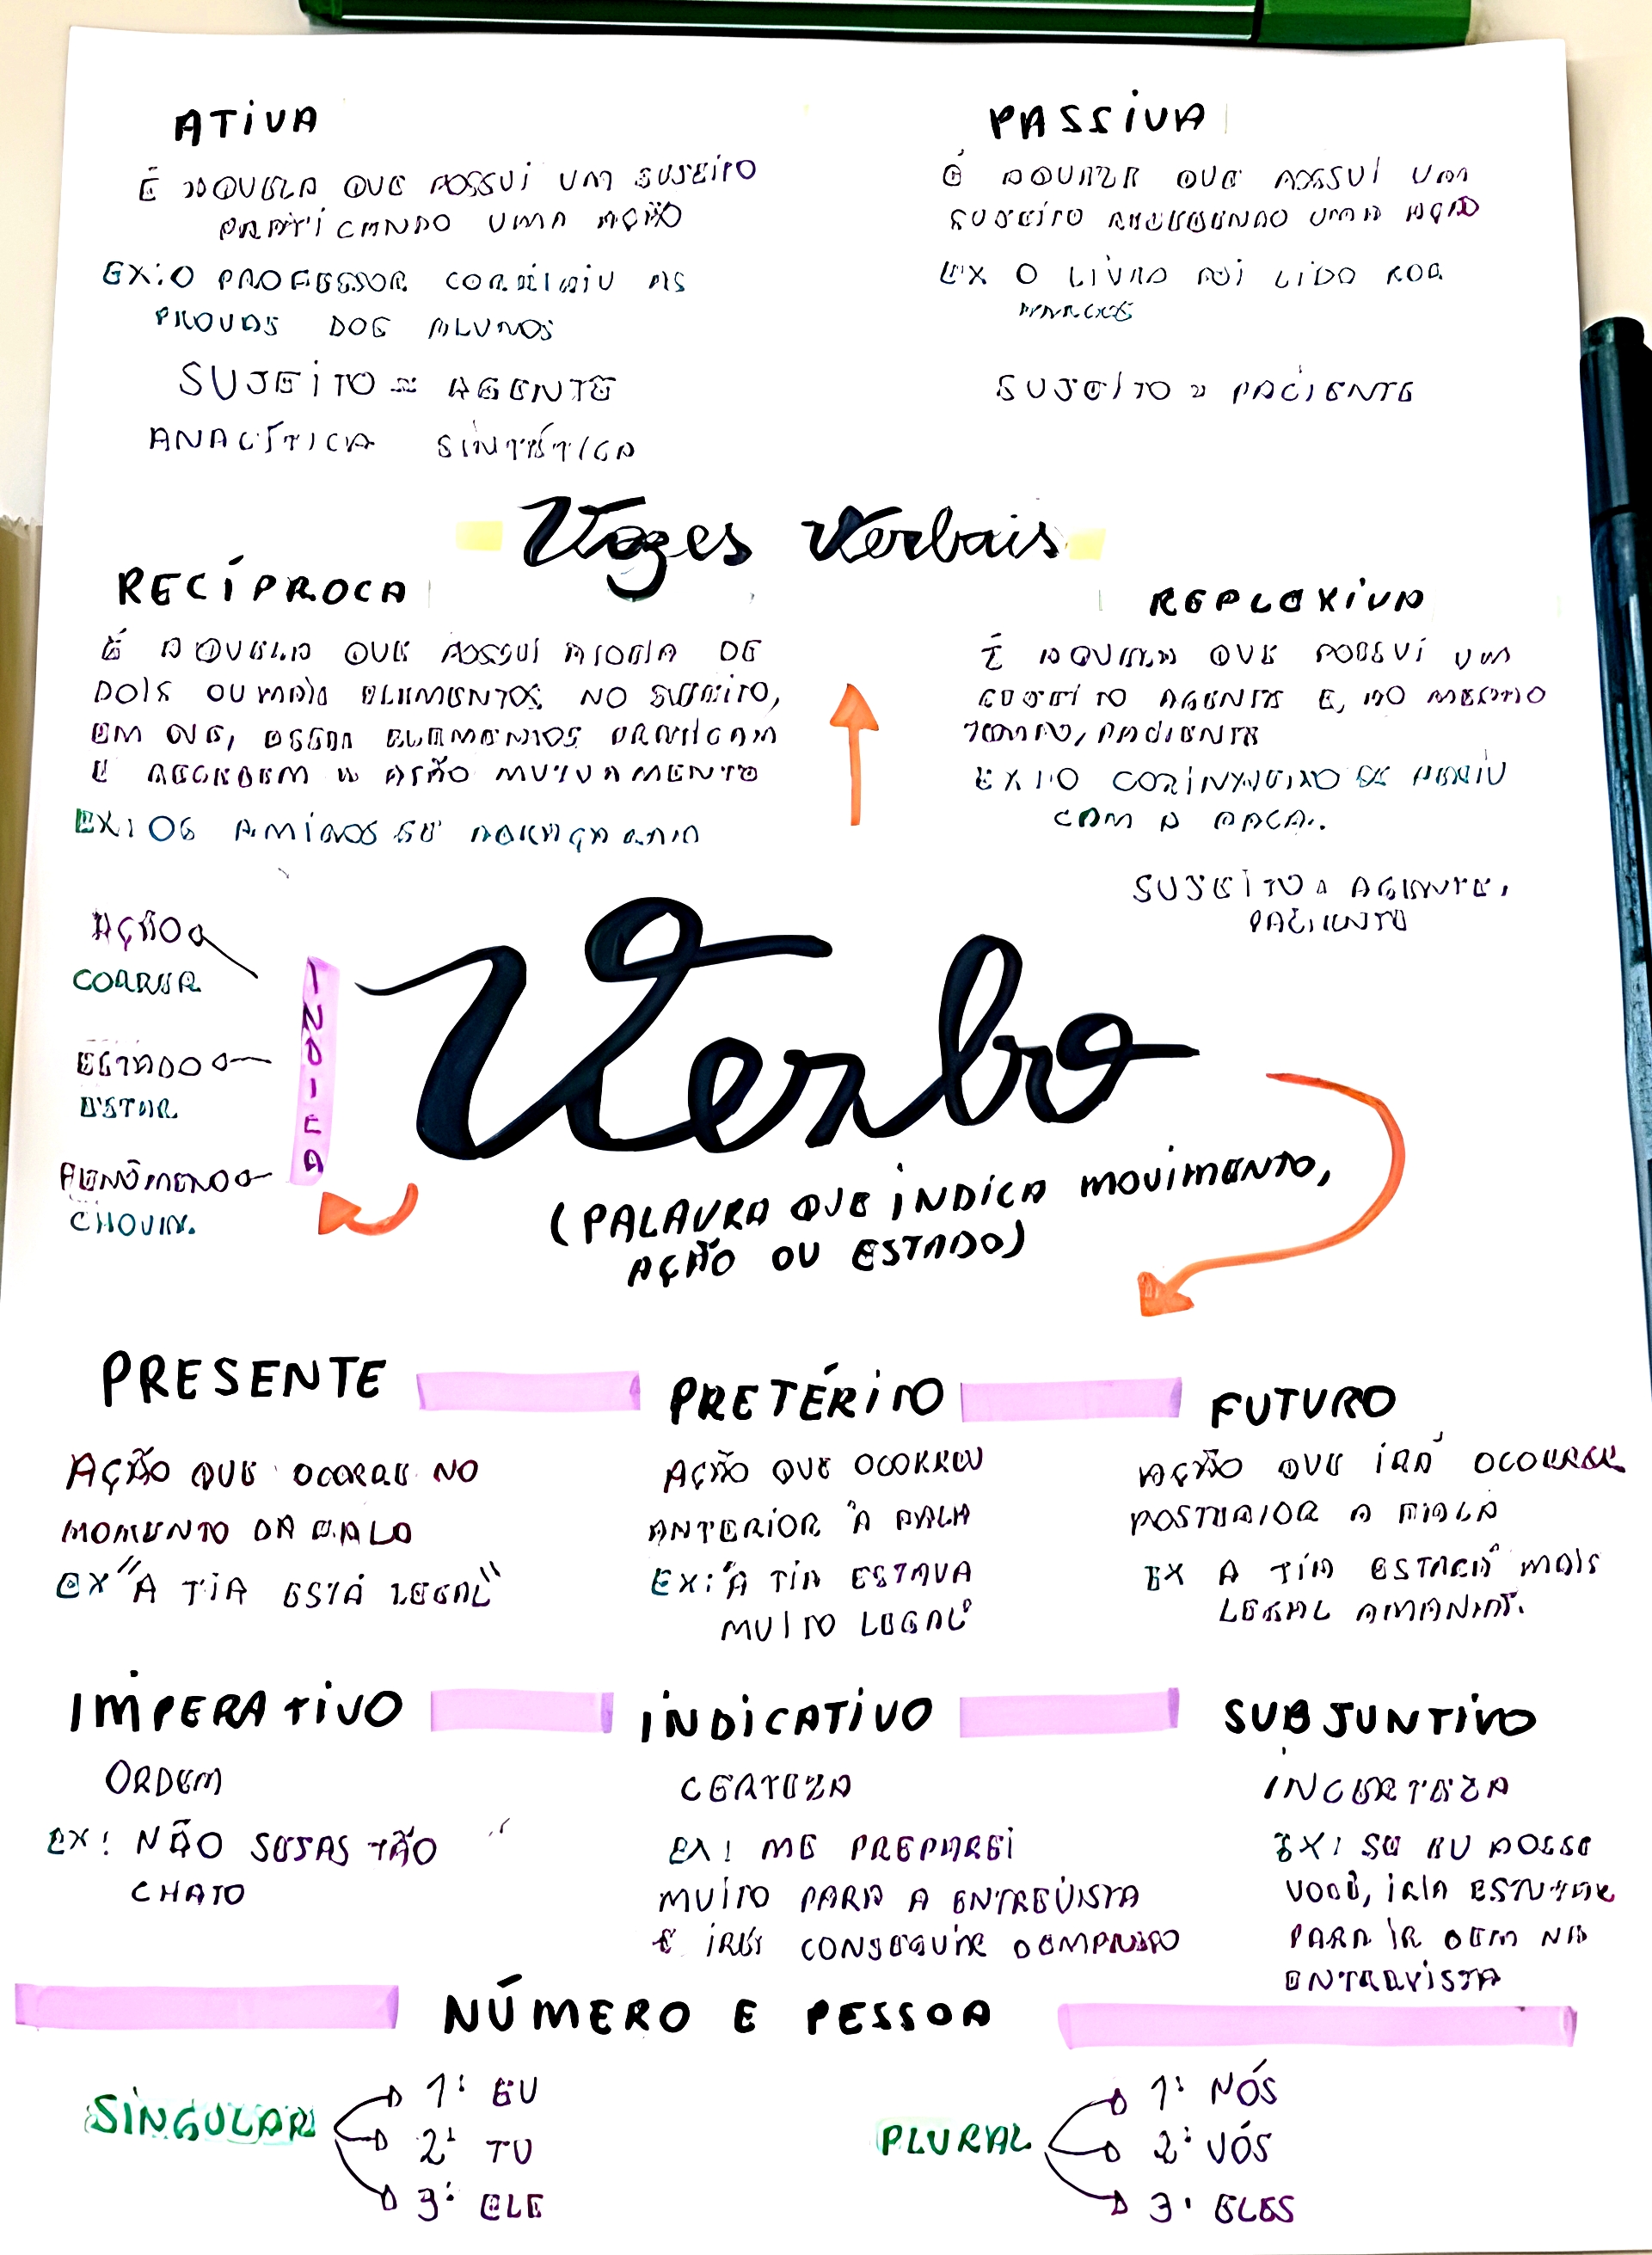 ATIVA
É AQUELA QUE POSSUI UM SUJEITO
PRATICANDO UMA AÇÃO
EX: O PROFESSOR CORRIGIU AS
PROVAS DOS ALUNOS
SUJEITO = AGENTE
ANALÍTICA SINTÉTICA
PASSIVA
É AQUELA QUE POSSUI UM
SUJEITO RECEBENDO UMA AÇÃO
EX O LIVRO FOI LIDO POR
SUJEITO = PACIENTE
Vozes Verbais
RECÍPROCA
É AQUELA QUE POSSUI DE
DOIS OU MAIS ELEMENTOS NO SUJEITO,
EM QUE, ESSES ELEMENTOS PRATICAM
E RECEBEM A AÇÃO MUTUAMENTE
EX: OS AMIGOS SE
REFLEXIVA
É AQUELA QUE POSSUI UM
SUJEITO AGENTE E, AO MESMO
TEMPO, PACIENTE
EX: O COZINHEIRO SE FERIU
COM A FACA.
SUJEITO = AGENTE,
PACIENTE
AÇÃO
CORRER
ESTADO
ESTAR
FENÔMENO
CHOVER.
INDICA
Verbo
(PALAVRA QUE INDICA MOVIMENTO,
AÇÃO OU ESTADO)
PRESENTE
AÇÃO QUE OCORRE NO
MOMENTO DA FALA
EX "A TIA ESTÁ LEGAL"
PRETÉRITO
AÇÃO QUE OCORREU
ANTERIOR À FALA
EX: "A TIA ESTAVA
MUITO LEGAL"
FUTURO
AÇÃO QUE IRÁ OCORRER
POSTERIOR A FALA
EX A TIA ESTARÁ MAIS
LEGAL AMANHÃ.
IMPERATIVO
ORDEM
EX: NÃO SEJAS TÃO
CHATO
INDICATIVO
CERTEZA
EX: ME PREPAREI
MUITO PARA A ENTREVISTA
E IREI CONSEGUIR O EMPREGO
SUBJUNTIVO
INCERTEZA
EX: SE EU FOSSE
VOCÊ, IRIA ESTUDAR
PARA IR BEM NA
ENTREVISTA
NÚMERO E PESSOA
SINGULAR
1ª EU
2ª TU
3ª ELE
PLURAL
1ª NÓS
2ª VÓS
3ª ELES